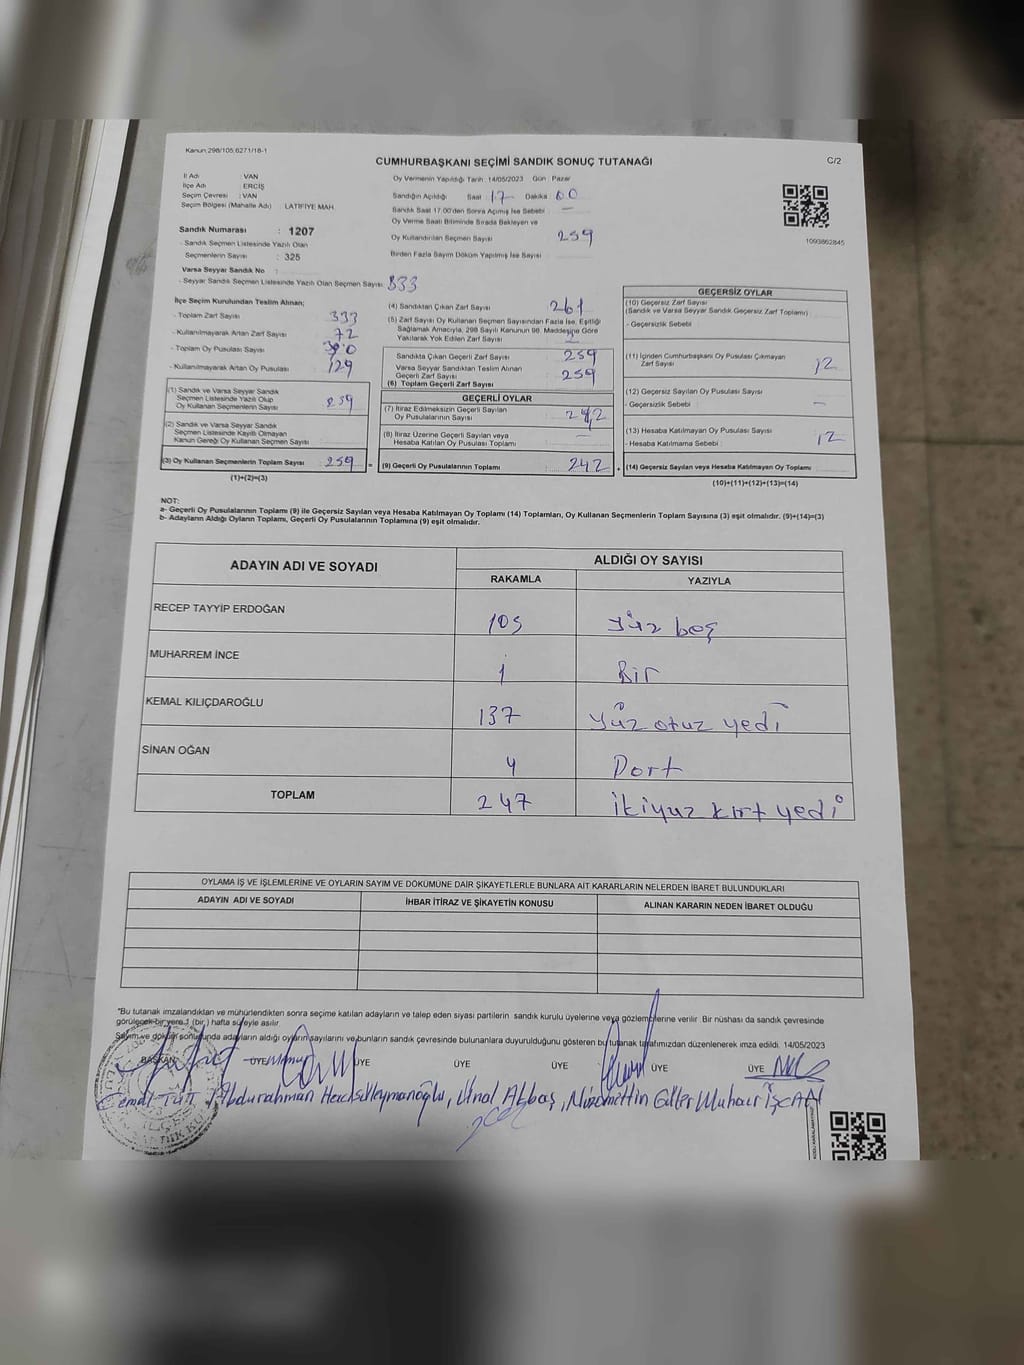 Kanun,298/105,6271/18-1
CUMHURBAŞKANI SEÇİMİ SANDIK SONUÇ TUTANAĞI
C/2
İl Adı : VAN
İlçe Adı : ERCİŞ
Seçim Çevresi : VAN
Seçim Bölgesi (Mahalle Adı) : LATİFİYE MAH.
Sandık Numarası : 1207
- Sandık Seçmen Listesinde Yazılı Olan
Seçmenlerin Sayısı : 325
Varsa Seyyar Sandık No :
- Seyyar Sandık Seçmen Listesinde Yazılı Olan Seçmen Sayısı 333
Oy Vermenin Yapıldığı Tarih : 14/05/2023 Gün : Pazar
Sandığın Açıldığı Saat 17 Dakika 00
Sandık Saat 17.00'den Sonra Açılmış İse Sebebi : —
Oy Verme Saati Bitiminde Sırada Bekleyen ve
Oy Kullandırılan Seçmen Sayısı 259
Birden Fazla Sayım Döküm Yapılmış İse Sayısı
1093862845
İlçe Seçim Kurulundan Teslim Alınan;
- Toplam Zarf Sayısı 333
- Kullanılmayarak Artan Zarf Sayısı 72
- Toplam Oy Pusulası Sayısı
- Kullanılmayarak Artan Oy Pusulası 129
(1) Sandık ve Varsa Seyyar Sandık
Seçmen Listesinde Yazılı Olup
Oy Kullanan Seçmenlerin Sayısı 259
(2) Sandık ve Varsa Seyyar Sandık
Seçmen Listesinde Kayıtlı Olmayan
Kanun Gereği Oy Kullanan Seçmen Sayısı
(3) Oy Kullanan Seçmenlerin Toplam Sayısı 259
(1)+(2)=(3)
(4) Sandıktan Çıkan Zarf Sayısı 261
(5) Zarf Sayısı Oy Kullanan Seçmen Sayısından Fazla İse, Eşitliği
Sağlamak Amacıyla, 298 Sayılı Kanunun 98. Maddesine Göre
Yakılarak Yok Edilen Zarf Sayısı 2
Sandıkta Çıkan Geçerli Zarf Sayısı 259
Varsa Seyyar Sandıktan Teslim Alınan
Geçerli Zarf Sayısı 259
(6) Toplam Geçerli Zarf Sayısı
GEÇERLİ OYLAR
(7) İtiraz Edilmeksizin Geçerli Sayılan
Oy Pusulalarının Sayısı 242
(8) İtiraz Üzerine Geçerli Sayılan veya
Hesaba Katılan Oy Pusulası Toplamı —
(9) Geçerli Oy Pusulalarının Toplamı 242
GEÇERSİZ OYLAR
(10) Geçersiz Zarf Sayısı
(Sandık ve Varsa Seyyar Sandık Geçersiz Zarf Toplamı)
- Geçersizlik Sebebi
(11) İçinden Cumhurbaşkanı Oy Pusulası Çıkmayan
Zarf Sayısı 12
(12) Geçersiz Sayılan Oy Pusulası Sayısı
- Geçersizlik Sebebi —
(13) Hesaba Katılmayan Oy Pusulası Sayısı
- Hesaba Katılmama Sebebi 12
(14) Geçersiz Sayılan veya Hesaba Katılmayan Oy Toplamı
(10)+(11)+(12)+(13)=(14)
NOT:
a- Geçerli Oy Pusulalarının Toplamı (9) ile Geçersiz Sayılan veya Hesaba Katılmayan Oy Toplamı (14) Toplamları, Oy Kullanan Seçmenlerin Toplam Sayısına (3) eşit olmalıdır. (9)+(14)=(3)
b- Adayların Aldığı Oyların Toplamı, Geçerli Oy Pusulalarının Toplamına (9) eşit olmalıdır.
ADAYIN ADI VE SOYADI
ALDIĞI OY SAYISI
RAKAMLA YAZIYLA
RECEP TAYYİP ERDOĞAN 105 Yüz beş
MUHARREM İNCE 1 Bir
KEMAL KILIÇDAROĞLU 137 Yüz otuz yedi
SİNAN OĞAN 4 Dört
TOPLAM 247 İkiyüz kırk yedi
OYLAMA İŞ VE İŞLEMLERİNE VE OYLARIN SAYIM VE DÖKÜMÜNE DAİR ŞİKAYETLERLE BUNLARA AİT KARARLARIN NELERDEN İBARET BULUNDUKLARI
ADAYIN ADI VE SOYADI İHBAR İTİRAZ VE ŞİKAYETİN KONUSU ALINAN KARARIN NEDEN İBARET OLDUĞU
"Bu tutanak imzalandıktan ve mühürlendikten sonra seçime katılan adayların ve talep eden siyasi partilerin sandık kurulu üyelerine veya gözlemcilerine verilir. Bir nüshası da sandık çevresinde
görülecek bir yere 1 (bir) hafta süreyle asılır.
Sayım ve döküm sonucunda adayların aldığı oyların sayılarını ve bunların sandık çevresinde bulunanlara duyurulduğunu gösteren bu tutanak tarafımızdan düzenlenerek imza edildi. 14/05/2023
BAŞKAN ÜYE ÜYE ÜYE ÜYE ÜYE ÜYE
Cemal Abdurahman Hacısüleymanoğlu, Ünal Akbaş, Nizamettin Güller